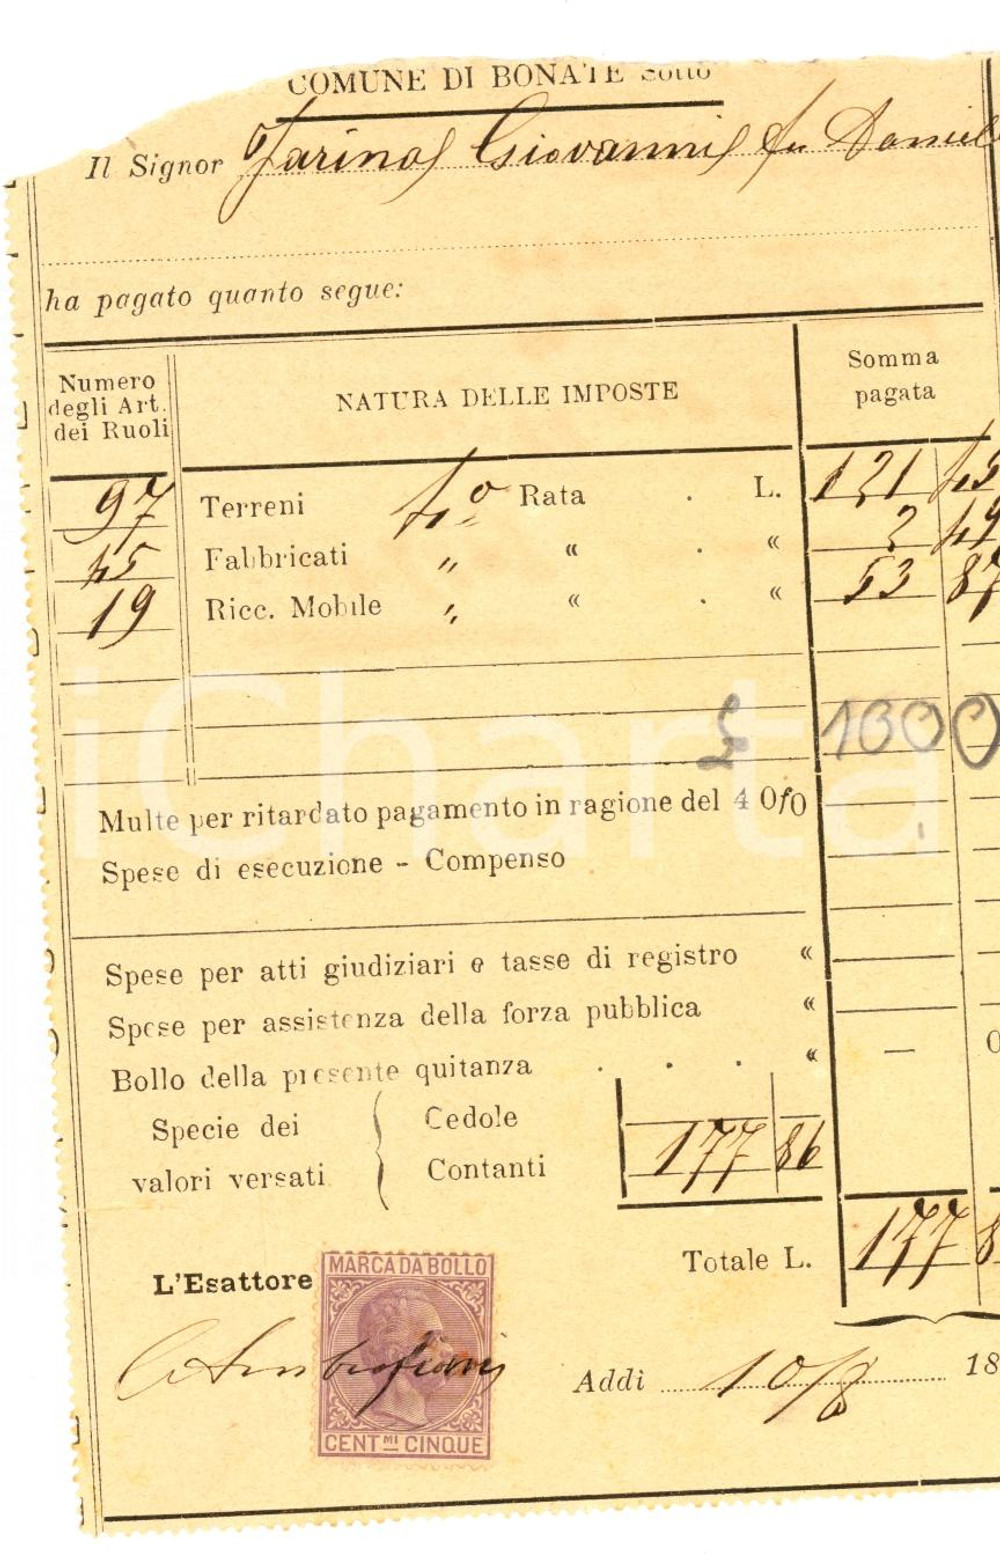 COMUNE DI BONATE Sotto
Il Signor Farina Giovanni fu Daniel
ha pagato quanto segue:
Numero degli Art. dei Ruoli
NATURA DELLE IMPOSTE
Somma pagata
97 Terreni Rata . L. 121 45
45 Fabbricati " « . « 2 49
19 Ricc. Mobile " « . « 53 87
1000
Multe per ritardato pagamento in ragione del 4 0/0
Spese di esecuzione - Compenso
Spese per atti giudiziari e tasse di registro «
Spese per assistenza della forza pubblica «
Bollo della presente quitanza . . . « — 0
Specie dei valori versati
Cedole
Contanti 177 86
Totale L. 177 8
L'Esattore
MARCA DA BOLLO
CENT.MI CINQUE
Addi 10/8 18
iCharta